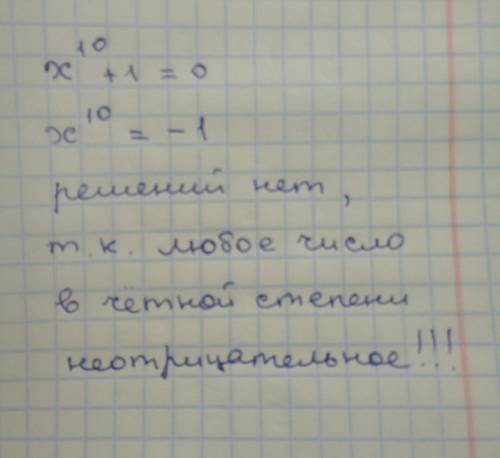 x¹⁰ + 1 = 0
x¹⁰ = - 1
решений нет,
т.к. любое число
в чётной степени
неотрицательное!!!